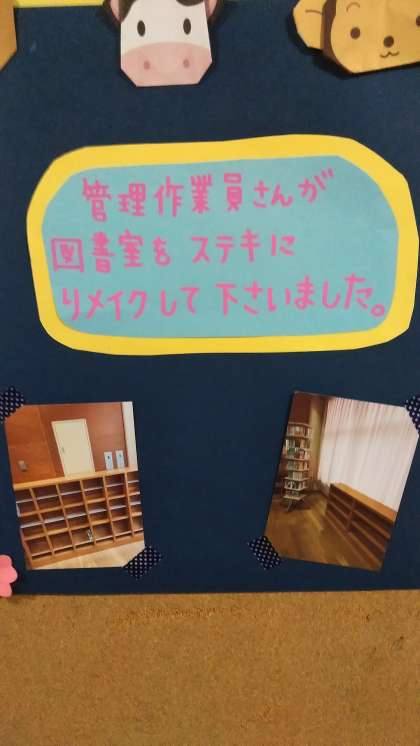 管理作業員さんが
図書室を ステキに
リメイクして下さいました。